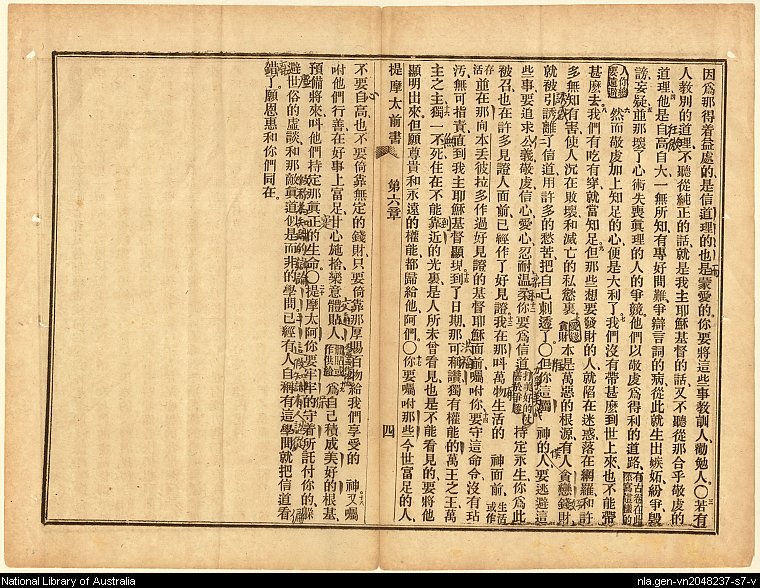 因爲那得着益處的是信道理的也是蒙愛的你要將這些事教訓人勸勉人〇若有
人教別的道理不聽從純正的話就是我主耶穌基督的話又不聽從那合乎敬虔的
道理他是自高自大一無所知有專好問難爭辯言詞的病從此就生出嫉妬紛爭毀
謗妄疑並那壞了心術失喪眞理的人的爭競他們以敬虔爲得利的道路
然而敬虔加上知足的心便是大利了我們沒有帶甚麽到世上來也不能帶
甚麽去我們有吃有穿就當知足但那些想要發財的人就陷在迷惑落在網羅和許
多無知有害使人沉在敗壞和滅亡的私慾裏 貪財本是萬惡的根源有人貪戀錢財
就被引誘離了信道用許多的愁苦把自己刺透了〇但你這屬 神的人要逃避這
些事要追求公義敬虔信心愛心忍耐溫柔你要爲信道 持定永生你爲此
被召也在許多見證人面前已經作了好見證我在那叫萬物生活的 神面前
並在那向本丟彼拉多作過好見證的基督耶穌面前囑咐你要守這命令沒有玷
汚無可指責直到我主耶穌基督顯現到了日期那可稱讚獨有權能的萬王之王萬
主之主獨一不死住在不能靠近的光裏是人所未曾看見也是不能看見的要將他
顯明出來但願尊貴和永遠的權能都歸給他阿們〇你要囑咐那些今世富足的人
提摩太前書 第六章 四
不要自高也不要倚靠無定的錢財只要倚靠那厚賜百物給我們享受的 神又囑
咐他們行善在好事上富足甘心施捨樂意體貼人 爲自己積成美好的根基
預備將來叫他們持定那眞正的生命〇提摩太阿你要牢牢的守着所託付你的躱
避世俗的虛談和那敵眞道似是而非的學問已經有人自稱有這學問就把信道看
錯了願恩惠和你們同在
National Library of Australia
nla.gen-vn2048237-s7-v